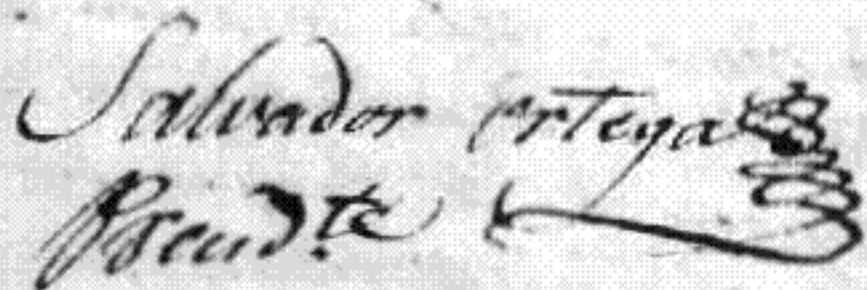 Salvador Ortega
Presid.te